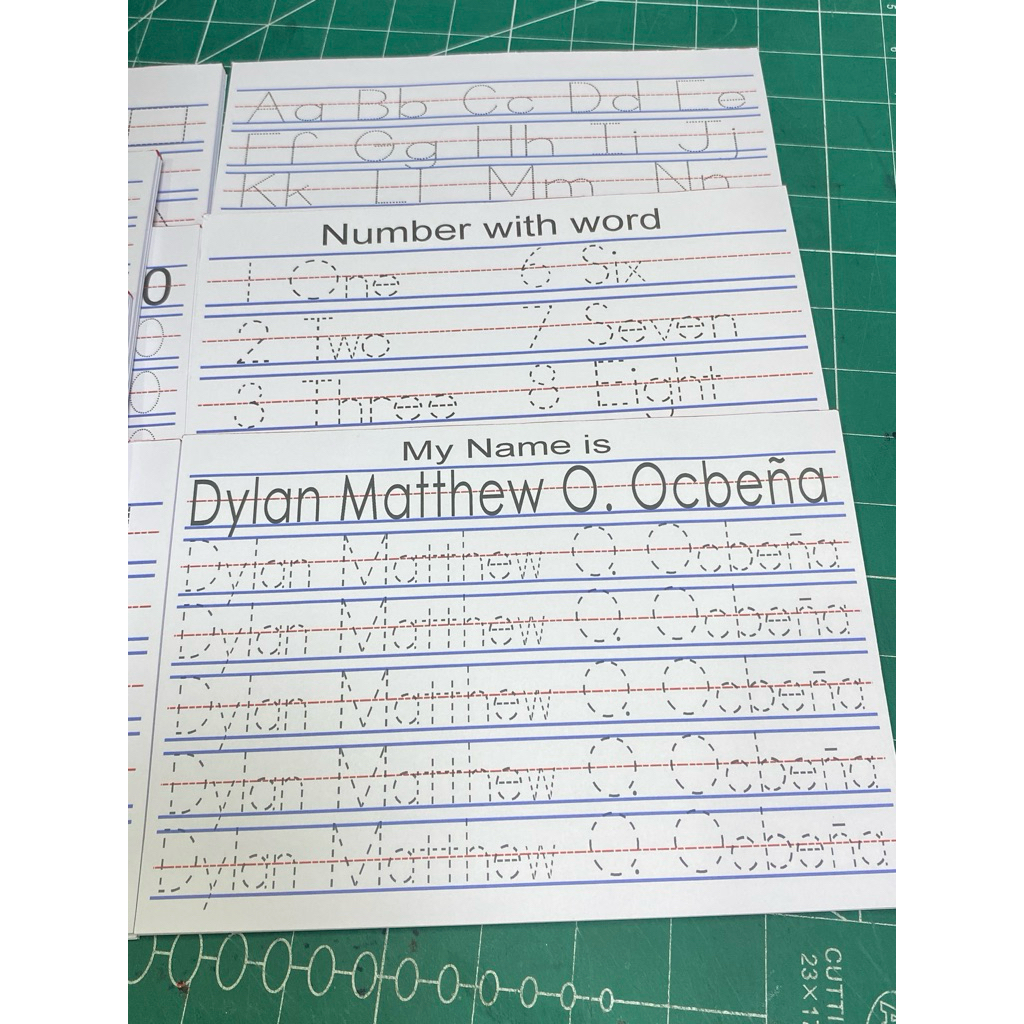 Aa Bb Cc Dd Ee
Ff Gg Hh Ii Jj
Kk Ll Mm Nn
Number with word
1 One 6 Six
2 Two 7 Seven
3 Three 8 Eight
0
0
0
My Name is
Dylan Matthew O. Ocbeña
Dylan Matthew O. Ocbeña
Dylan Matthew O. Ocbeña
Dylan Matthew O. Ocbeña
Dylan Matthew O. Ocbeña
Dylan Matthew O. Ocbeña